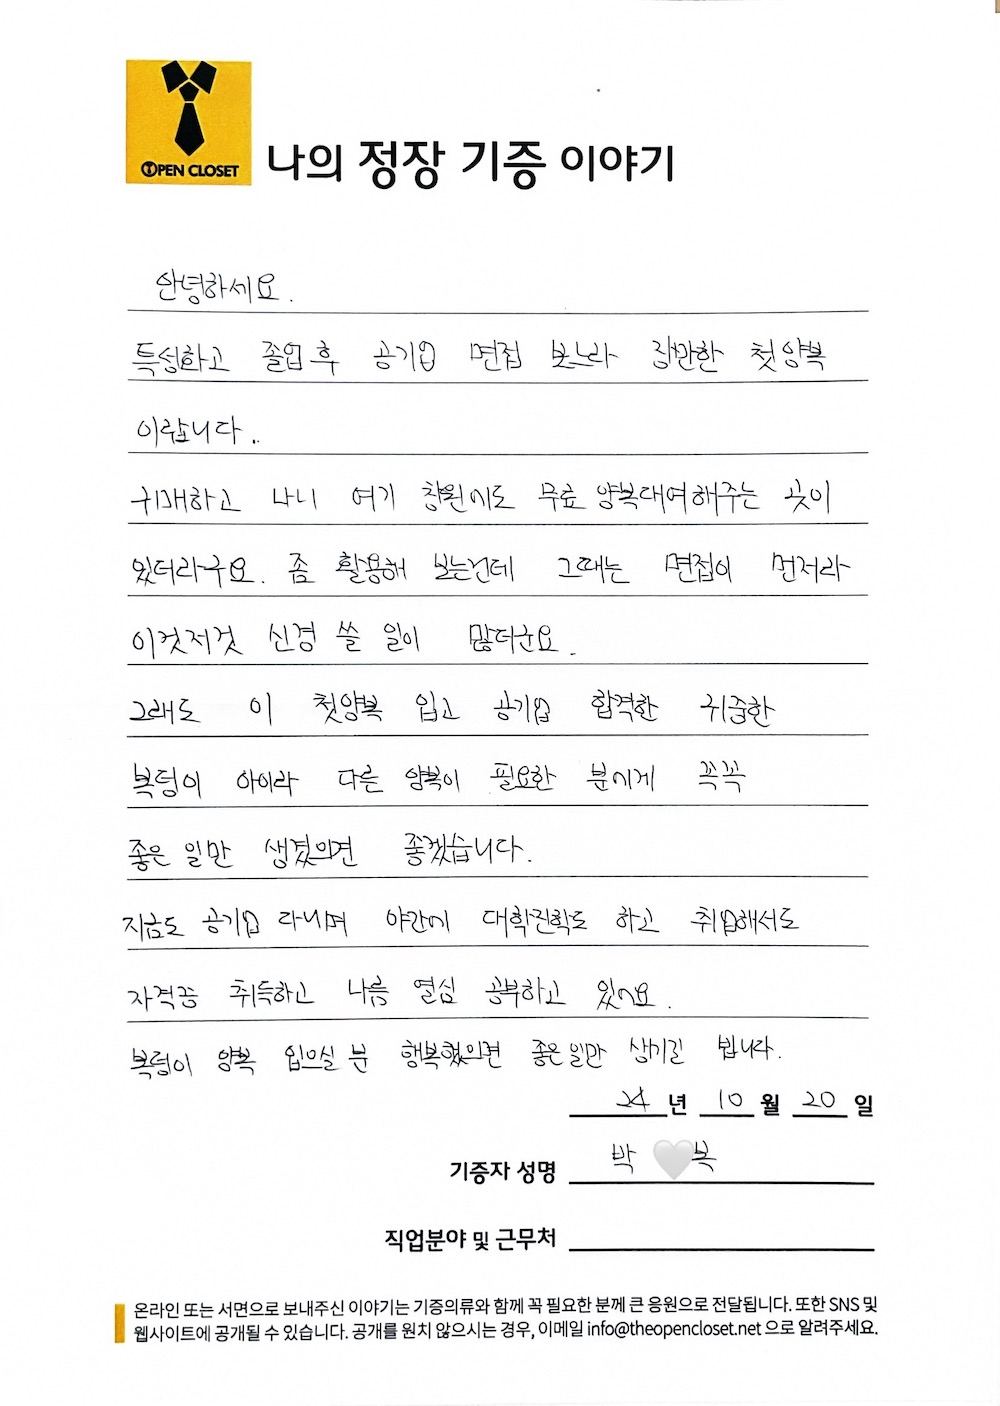 OPEN CLOSET
나의 정장 기증 이야기
안녕하세요.
특성화고 졸업후 공기업 면접 보느라 장만한 첫양복
이랍니다..
구매하고 나니 여기 창원에도 무료 양복대여해주는 곳이
있더라구요. 좀 활용해 보는건데 그때는 면접이 먼저라
이것저것 신경 쓸 일이 많더군요.
그래도 이 첫양복 입고 공기업 합격한 귀중한
복덩이 아이라 다른 양복이 필요한 분에게 꼭꼭
좋은 일만 생겼으면 좋겠습니다.
지금도 공기업 다니며 야간에 대학진학도 하고 취업해서도
자격증 취득하고 나름 열심 공부하고 있어요.
복덩이 양복 입으실 분 행복했으면 좋은일만 생기길 빕니다.
24 년 10 월 20 일
기증자 성명 박 🤍복
직업분야 및 근무처
온라인 또는 서면으로 보내주신 이야기는 기증의류와 함께 꼭 필요한 분께 큰 응원으로 전달됩니다. 또한 SNS 및
웹사이트에 공개될 수 있습니다. 공개를 원치 않으시는 경우, 이메일 info@theopencloset.net 으로 알려주세요.